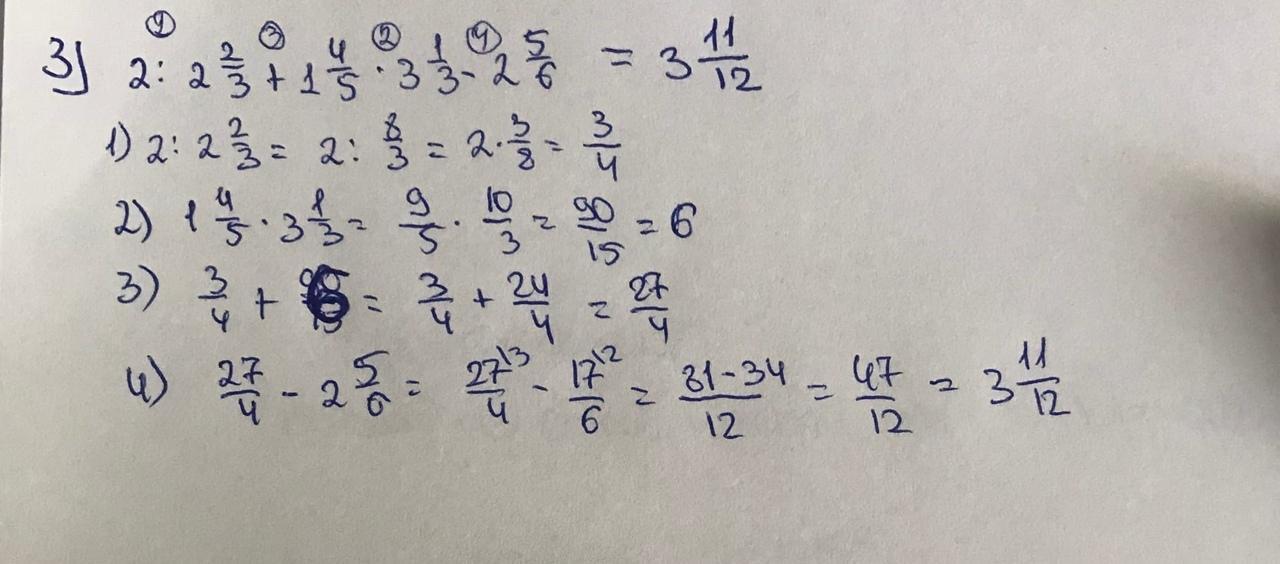 ① ③ ② ④
3) 2 : 2 2/3 + 1 4/5 · 3 1/3 - 2 5/6 = 3 11/12
1) 2 : 2 2/3 = 2 : 8/3 = 2 · 3/8 = 3/4
2) 1 4/5 · 3 1/3 = 9/5 · 10/3 = 90/15 = 6
3) 3/4 + 6 = 3/4 + 24/4 = 27/4
4) 27/4 - 2 5/6 = 27\3/4 - 17\2/6 = 81-34/12 = 47/12 = 3 11/12